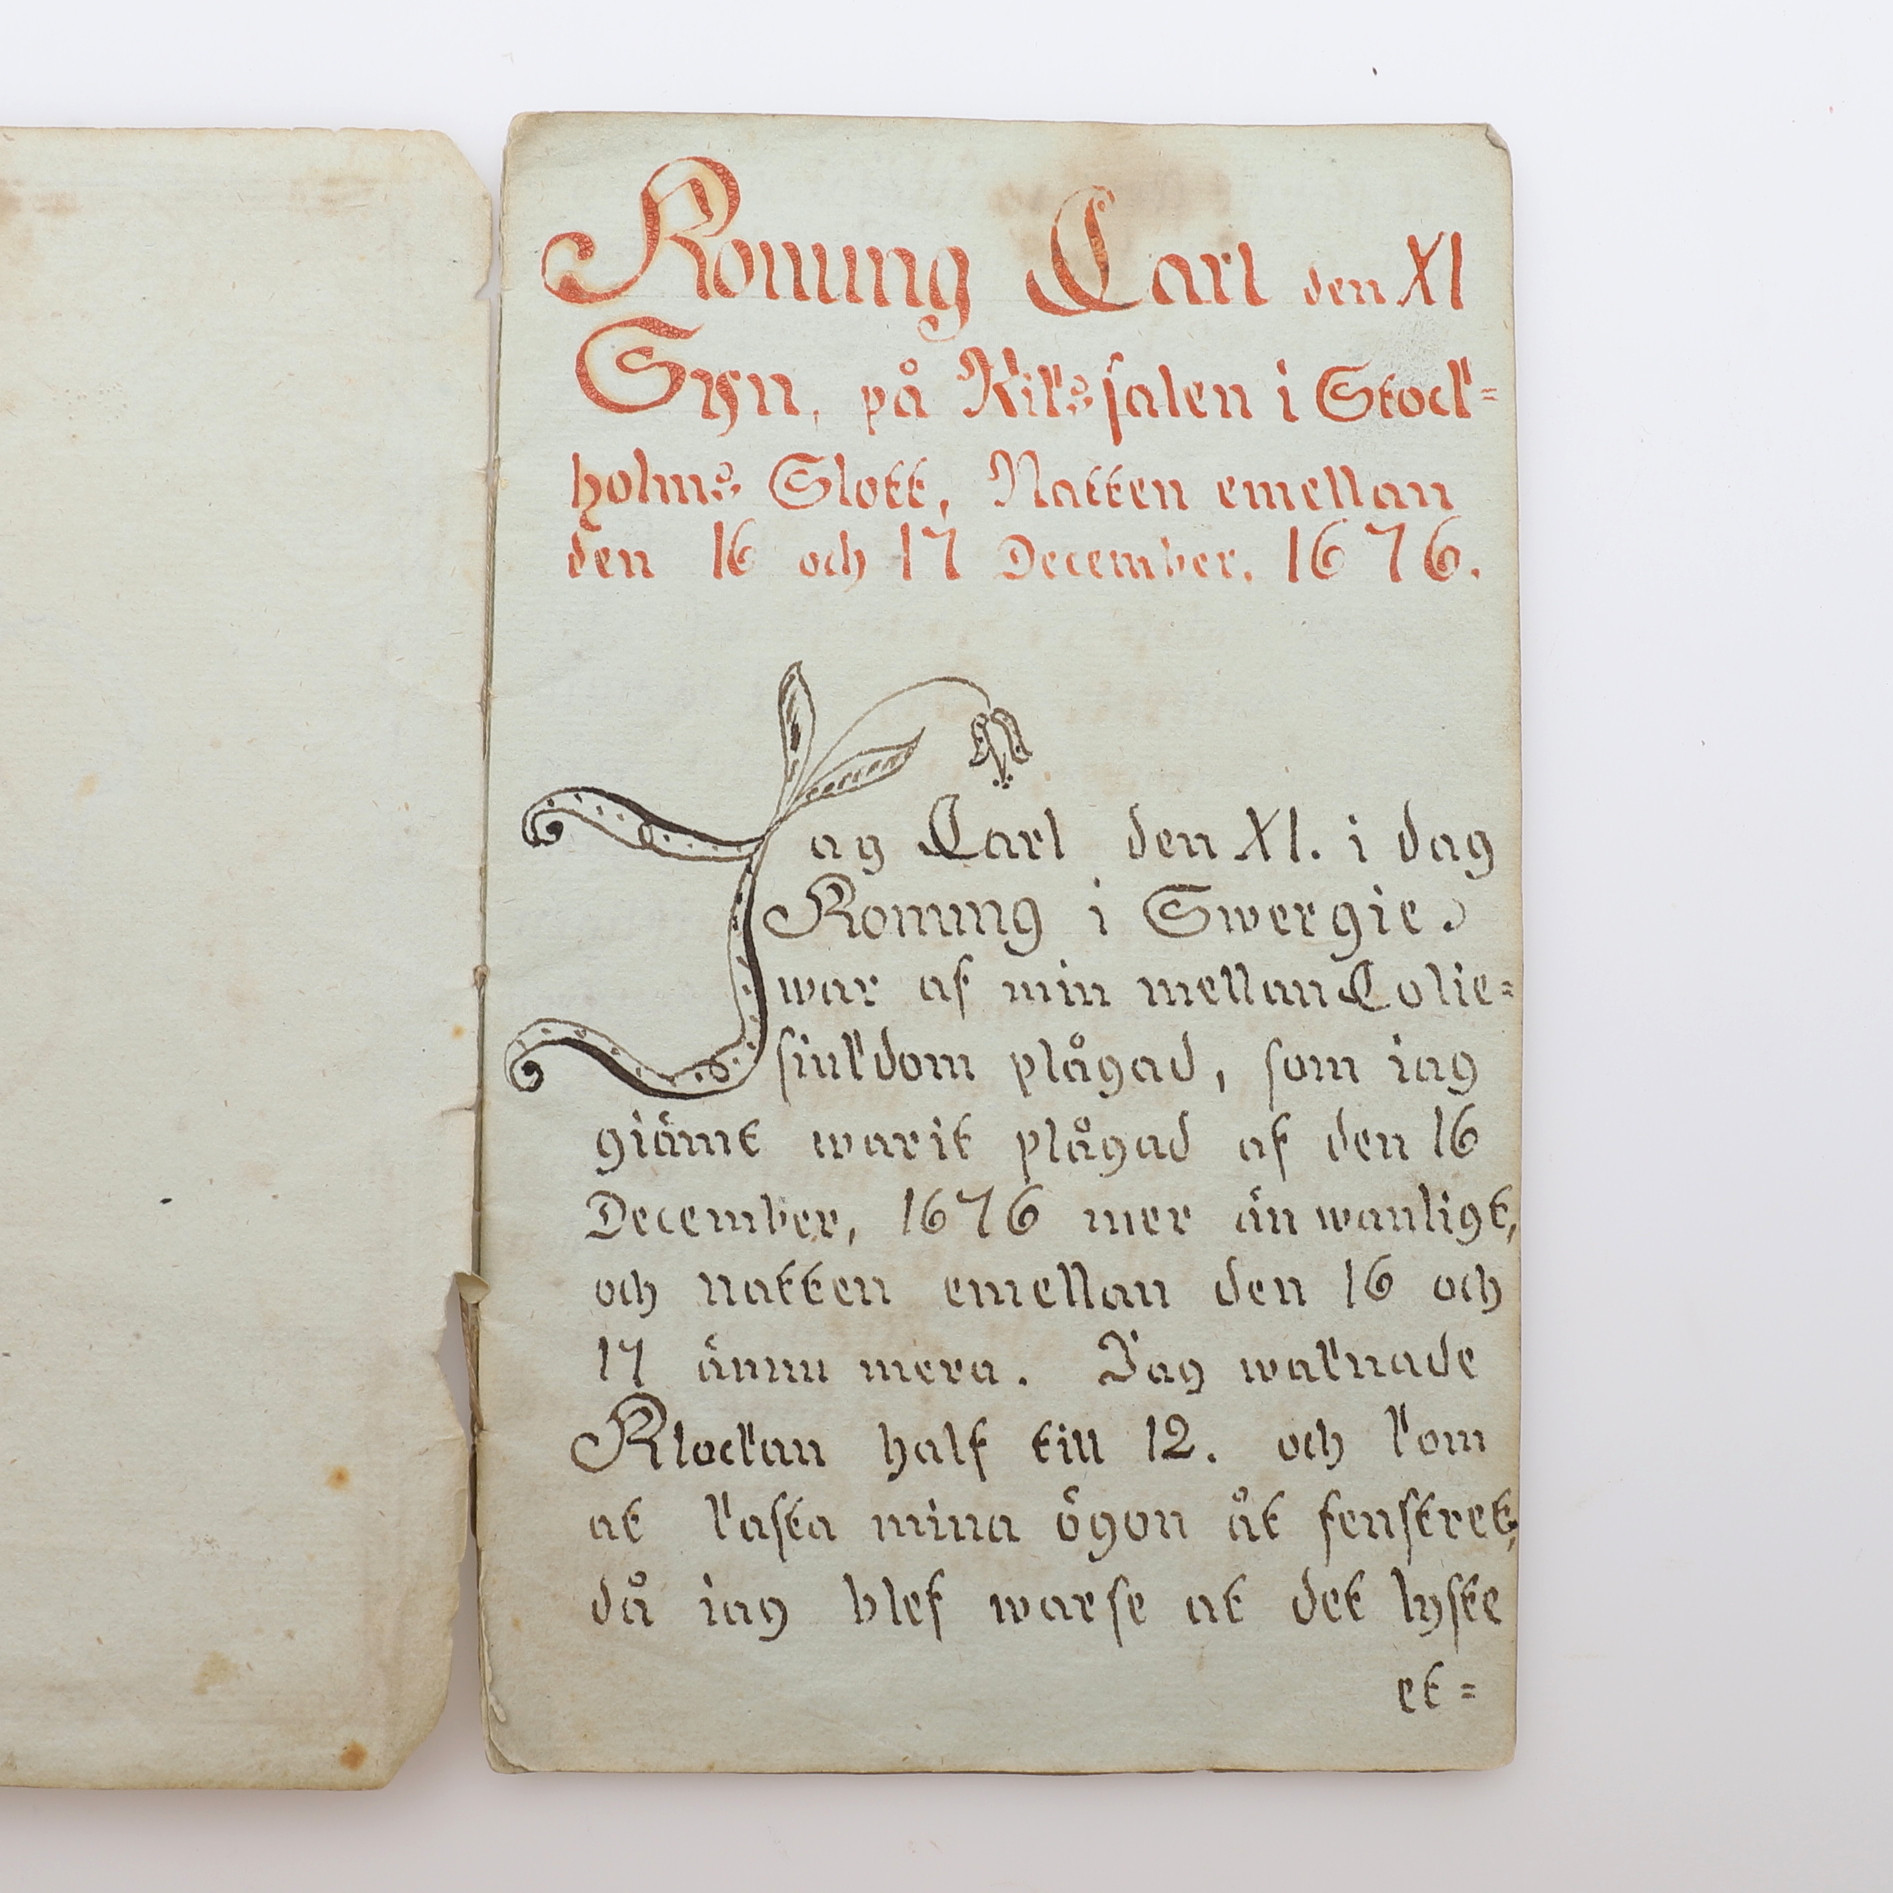 Konung Carl den XI
Syn, på Riks salen i Stock=
holms Slott, Natten emellan
den 16 och 17 December. 1676.
Jag Carl den XI. i dag
Konung i Swergie.
war af min mellan Colie=
siukdom plågad, som iag
giämt warit plågad af den 16
December, 1676 mer än wanligt,
och natten emellan den 16 och
17 ännu mera. Jag waknade
Klockan half till 12. och kom
at kasta mina ögon åt fenstret,
då iag blef warse at det lyste
et=